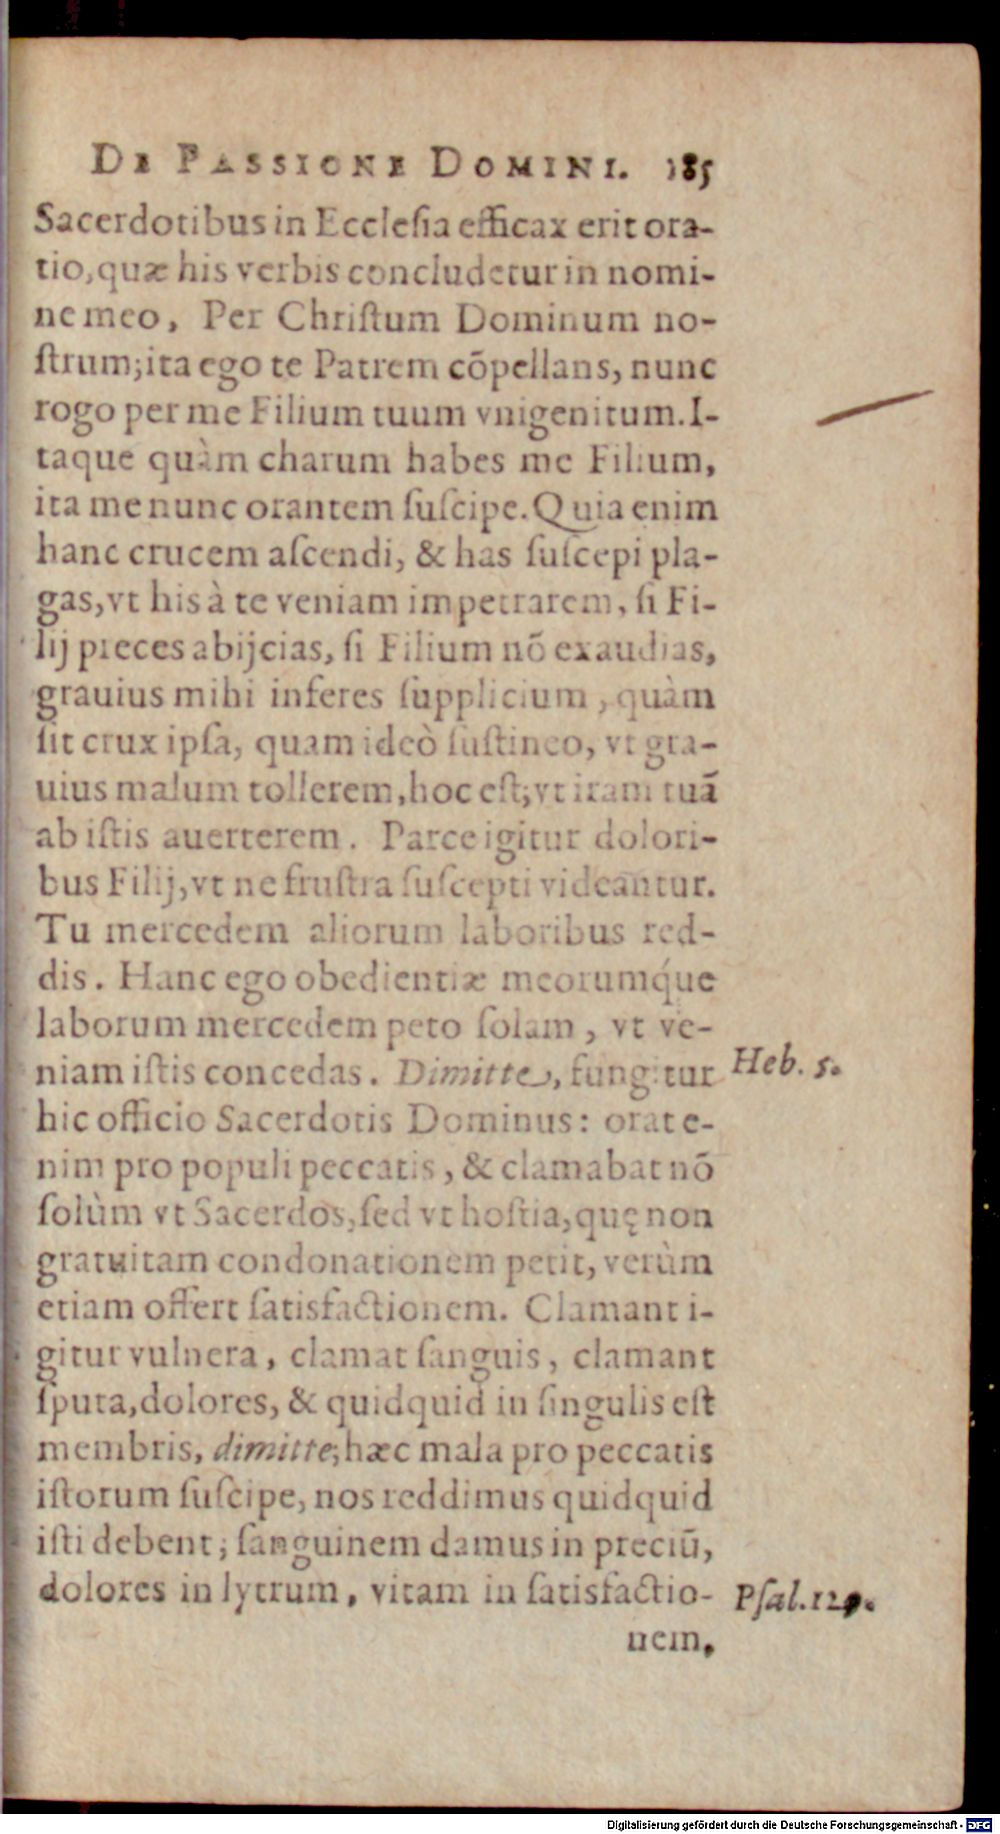 DE PASSIONE DOMINI. 185
Sacerdotibus in Ecclesia efficax erit ora-
tio, quæ his verbis concludetur in nomi-
ne meo, Per Christum Dominum no-
strum; ita ego te Patrem cõpellans, nunc
rogo per me Filium tuum vnigenitum. I-
taque quàm charum habes me Filium,
ita me nunc orantem suscipe. Quia enim
hanc crucem ascendi, & has suscepi pla-
gas, vt his à te veniam impetrarem, si Fi-
lij preces abijcias, si Filium nõ exaudias,
grauius mihi inferes supplicium, quàm
sit crux ipsa, quam ideò sustineo, vt gra-
uius malum tollerem, hoc est; vt iram tuã
ab istis auerterem. Parce igitur dolori-
bus Filij, vt ne frustra suscepti videantur.
Tu mercedem aliorum laboribus red-
dis. Hanc ego obedientiæ meorumq́ue
laborum mercedem peto solam, vt ve-
niam istis concedas. Dimitte, fungitur Heb. 5.
hic officio Sacerdotis Dominus: orat e-
nim pro populi peccatis, & clamabat nõ
solùm vt Sacerdos, sed vt hostia, quę non
gratuitam condonationem petit, verùm
etiam offert satisfactionem. Clamant i-
gitur vulnera, clamat sanguis, clamant
sputa, dolores, & quidquid in singulis est
membris, dimitte; hæc mala pro peccatis
istorum suscipe, nos reddimus quidquid
isti debent; sanguinem damus in preciũ,
dolores in lytrum, vitam in satisfactio- Psal. 129.
nem.
Digitalisierung gefördert durch die Deutsche Forschungsgemeinschaft - DFG